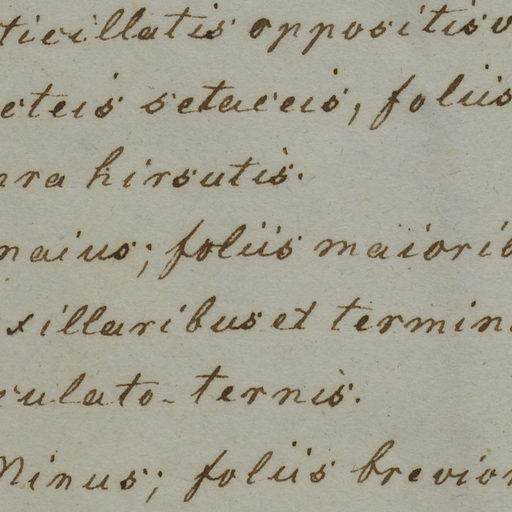 ticillatis oppositisv
cteis setaceis, foliis
nra hirsutis.
maius; foliis maiorib
xillaribus et termin
culato-ternis.
Minus; foliis brevior